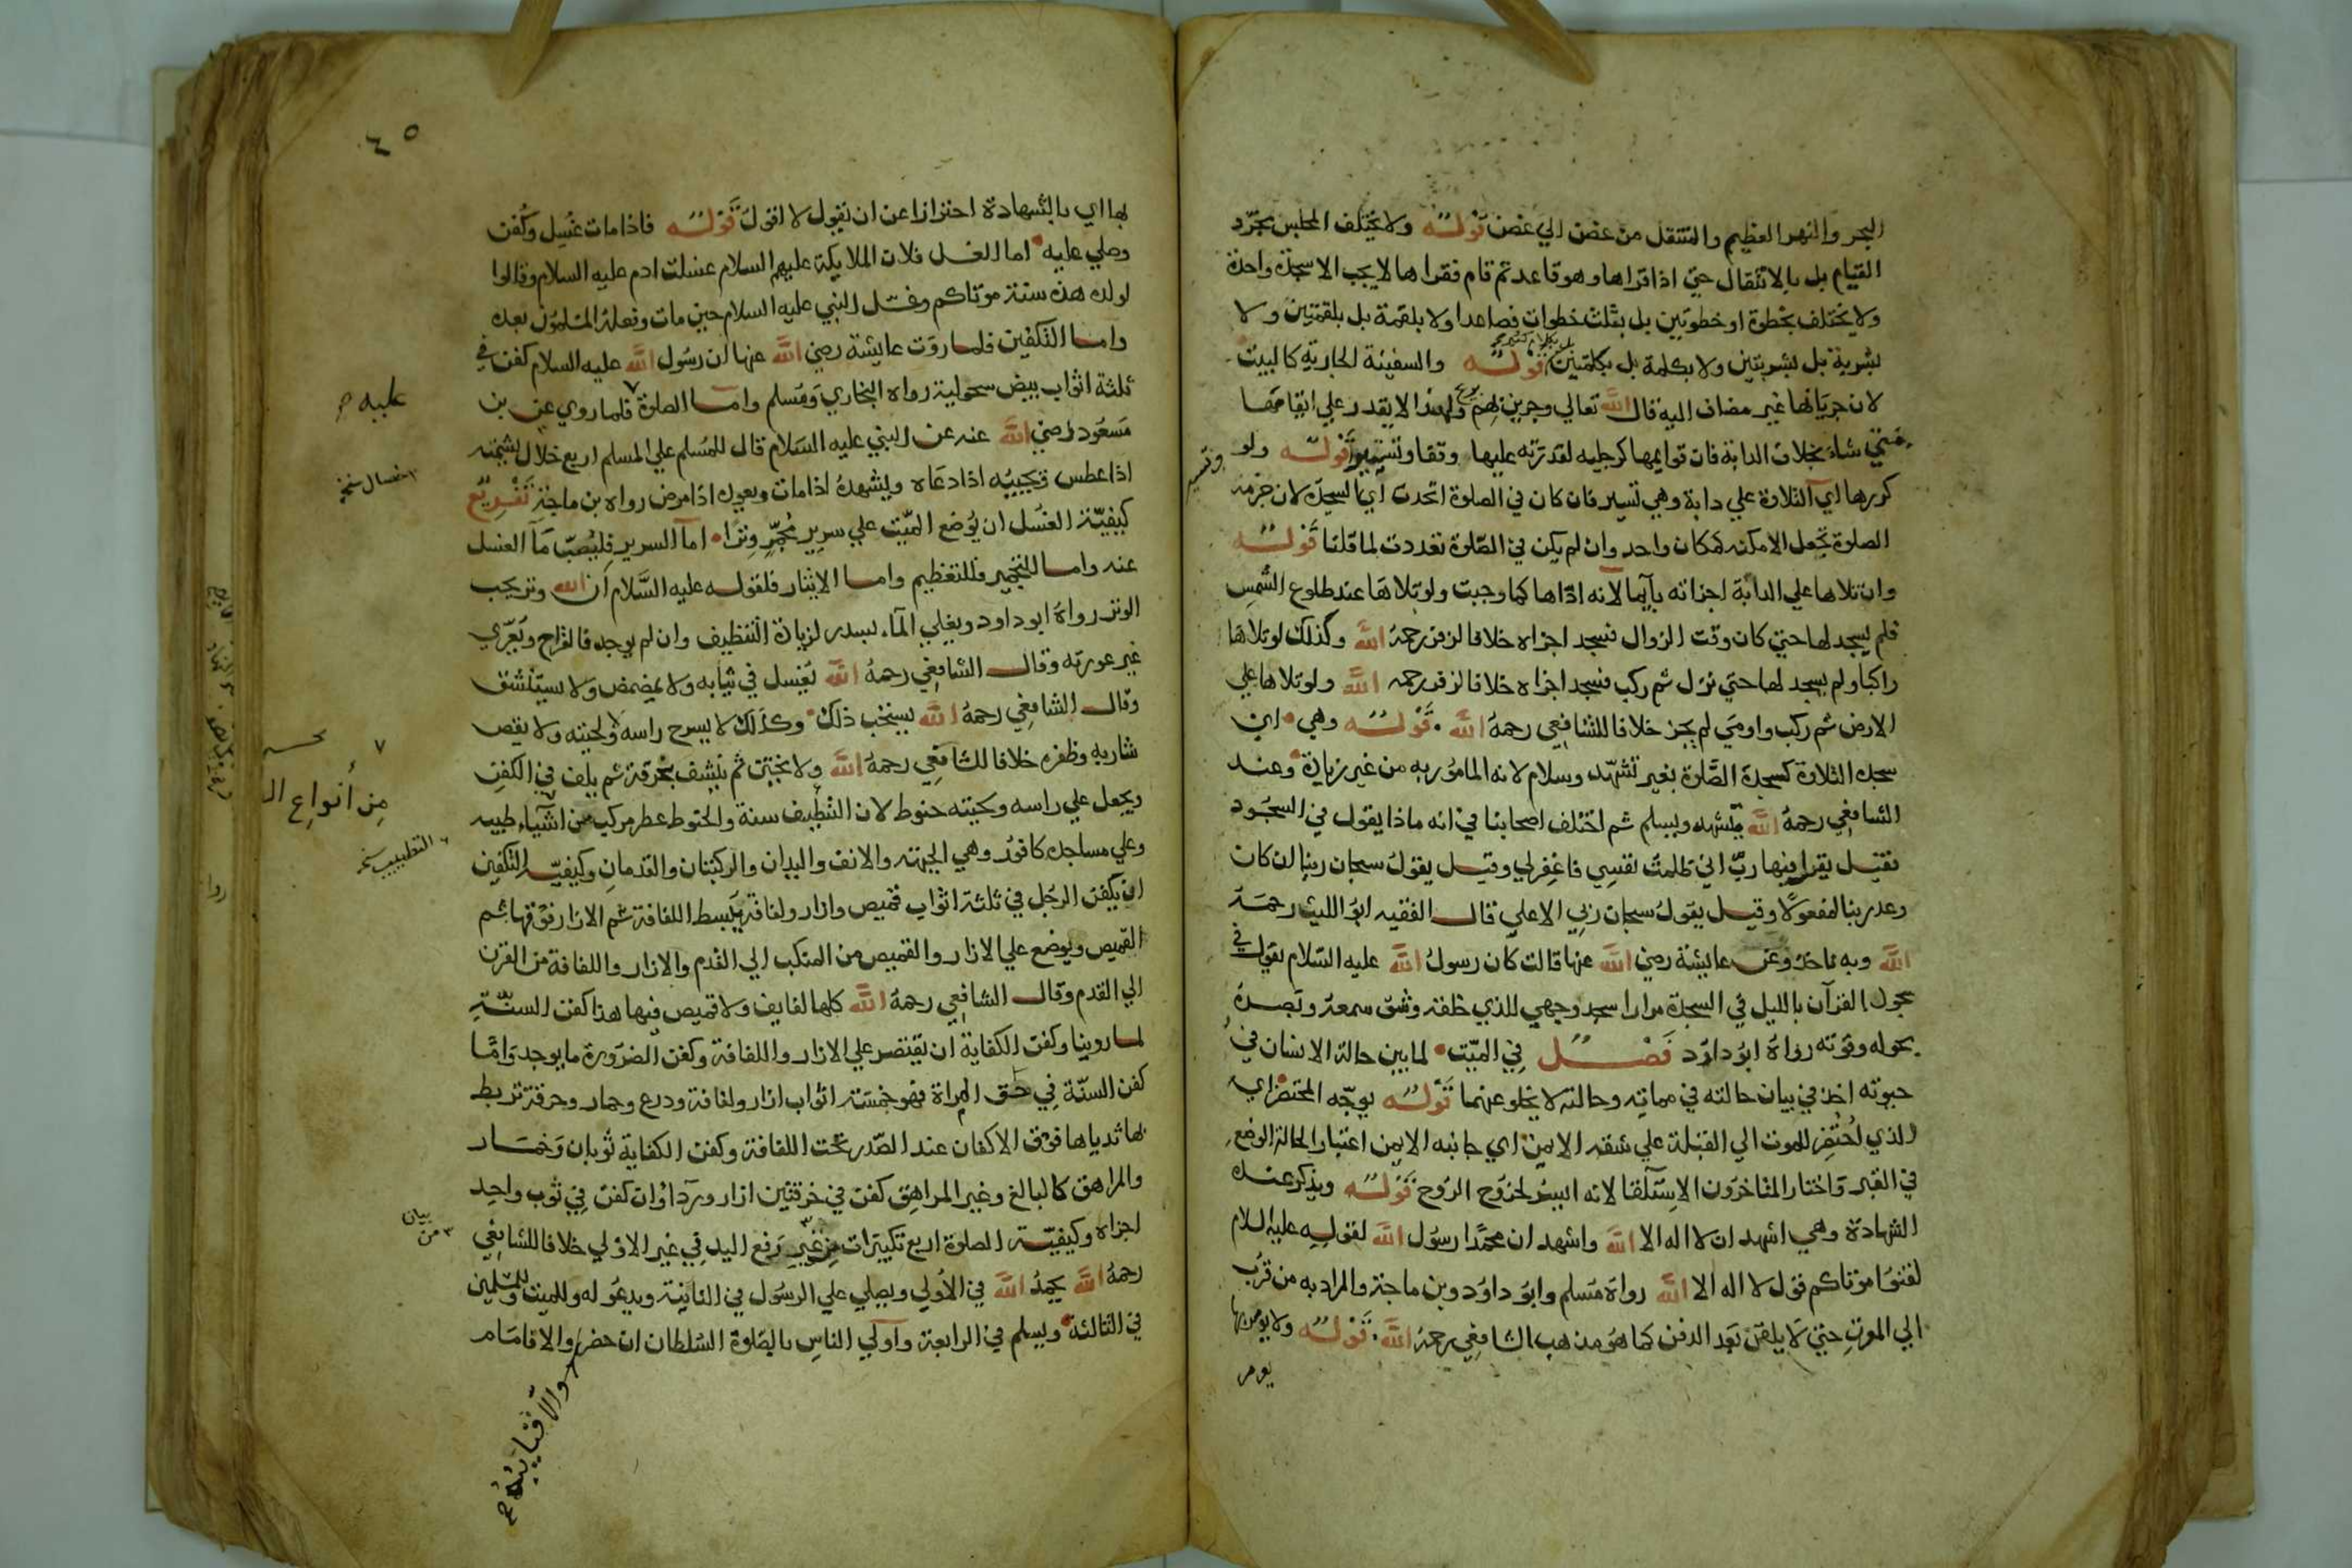 البحر والنهر العظيم والتنقل من غصن الي غصن قوله ولا يختلف المجلس بمجرد
القيام بل بالانتقال حتي اذا قراها وهو قاعد ثم قام فقراها لا يجب الا سجدة واحدة
ولا يختلف بخطوة او خطوتين بل بثلث خطوات فصاعدا ولا بلقمة بل بلقمتين ولا
بشربة بل بشربتين ولا بكلمة بل بكلمتين قوله والسفينة الجارية كالبيت
بل بكلام كثير
لان جريانها غير مضاف اليه قال الله تعالي وجرين بهم ولهذا لا يقدر علي ايقافها
متي شاء بخلاف الدابة فان قوايمها كرجليه لقدرته عليها وقفا وتسييرا قوله ولو
كررها اي التلاوة علي دابة وهي تسير فان كان في الصلوة اتحدت اي السجدة لان حرمة
الصلوة تجعل الامكنة كمكان واحد وان لم يكن في الصلوة تعددت لما قلنا قوله
وان تلاها علي الدابة اجزاته بايما لانه اداها كما وجبت ولو تلاها عند طلوع الشمس
فلم يسجد لها حتي كان وقت الزوال فسجد اجزاه خلافا لزفر رحمه الله وكذلك لو تلاها
راكبا ولم يسجد لها حتي نزل ثم ركب فسجد اجزاه خلافا لزفر رحمه الله ولو تلاها علي
الارض ثم ركب واومي لم يجز خلافا للشافعي رحمه الله قوله وهي اي
سجدة التلاوة كسجدة الصلوة بغير تشهد وسلام لانه المامور به من غير زيادة وعند
الشافعي رحمه الله يتشهد ويسلم ثم اختلف اصحابنا في انه ماذا يقول في السجود
فقيل يقرا فيها رب اني ظلمت نفسي فاغفرلي وقيل يقول سبحان ربنا ان كان
وعد ربنا لمفعولا وقيل يقول سبحان ربي الاعلي قال الفقيه ابو الليث رحمه
الله وبه ناخذ وعن عايشة رضي الله عنها قالت كان رسول الله عليه السلام يقول في
سجود القرآن بالليل في السجدة مرارا سجد وجهي للذي خلقه وشق سمعه وبصره
بحوله وقوته رواه ابو داود فصل في الميت لما بين حالة الانسان في
حيوته اخذ في بيان حالته في مماته وحالته لا يخلو عنهما قوله يوجه المحتضر اي
الذي احتضر للموت الي القبلة علي شقه الايمن اي جانبه الايمن اعتبارا لحالة الوضع
في القبر واختار المتاخرون الاستلقا لانه ايسر لخروج الروح قوله ويذكر عنده
الشهادة وهي اشهد ان لا اله الا الله واشهد ان محمدا رسول الله لقوله عليه السلام
لقنوا موتاكم قول لا اله الا الله رواه مسلم وابو داود وبن ماجة والمراد به من قرب
الي الموت حتي لا يلقن بعد الدفن كما هو مذهب الشافعي رحمه الله قوله ولا يومر بها
يومر
٦٥
بها اي بالشهادة احترازا عن ان يقول لا اقول قوله فاذا مات غسل وكفن
وصلي عليه اما الغسل فلان الملايكة عليهم السلام غسلت ادم عليه السلام وقالوا
لولده هذه سنة موتاكم وغسل النبي عليه السلام حين مات وفعله المسلمون بعده
واما التكفين فلما روت عايشة رضي الله عنها ان رسول الله عليه السلام كفن في
ثلثة اثواب بيض سحولية رواه البخاري ومسلم واما الصلوة فلما روي عن بن
مسعود رضي الله عنه عن النبي عليه السلام قال للمسلم علي المسلم اربع خلال يشمته
اذا عطس ويجيبه اذا دعاه ويشهده اذا مات ويعوده اذا مرض رواه بن ماجة تفريع
كيفية الغسل ان يوضع الميت علي سرير مجمر وترا اما السرير فليصب ما الغسل
عنه واما التجمير فللتعظيم واما الايثار فلقوله عليه السلام ان الله وتر يحب
الوتر رواه ابو داود ويغلي الماء بسدر لزيادة التنظيف وان لم يوجد فالقراح ويعري
غير عورته وقال الشافعي رحمه الله يغسل في ثيابه ولا يمضمض ولا يستنشق
وقال الشافعي رحمه الله يستحب ذلك وكذلك لا يسرح راسه ولحيته ولا يقص
شاربه وظفره خلافا للشافعي رحمه الله ولا يختن ثم ينشف بخرقة ثم يلف في الكفن
ويجعل علي راسه ولحيته حنوط لان التطيب سنة والحنوط عطر مركب من اشياء طيبه
وعلي مساجده كافور وهي الجبهة والانف واليدان والركبتان والقدمان وكيفية التكفين
ان يكفن الرجل في ثلثة اثواب قميص وازار ولفافة يبسط اللفافة ثم الازار فوقها ثم
القميص ويوضع علي الازار والقميص من المنكب الي القدم والازار واللفافة من القرن
الي القدم وقال الشافعي رحمه الله كلها لفايف ولا قميص فيها هذا كفن السنة
لما روينا وكفن الكفاية ان يقتصر علي الازار واللفافة وكفن الضرورة ما يوجد واما
كفن السنة في حق المراة فهو خمسة اثواب ازار ولفافة ودرع وخمار وخرقة تربط
بها ثدياها فوق الاكفان عند الصدر تحت اللفافة وكفن الكفاية ثوبان وخمار
والمراهق كالبالغ وغير المراهق كفن في خرقتين ازار وردا وان كفن في ثوب واحد
اجزاه وكيفية الصلوة اربع تكبيرات من غير رفع اليد في غير الاولي خلافا للشافعي
رحمه الله يحمد الله في الاولي ويصلي علي الرسول في الثانية ويدعو له وللميت وللمسلمين
في الثالثة ويسلم في الرابعة واولي الناس بالصلوة السلطان ان حضر والا فامام
عليه
خصال نسخه
من أنواع ال
التطييب نسخه
بيان
من
والا فنايبه